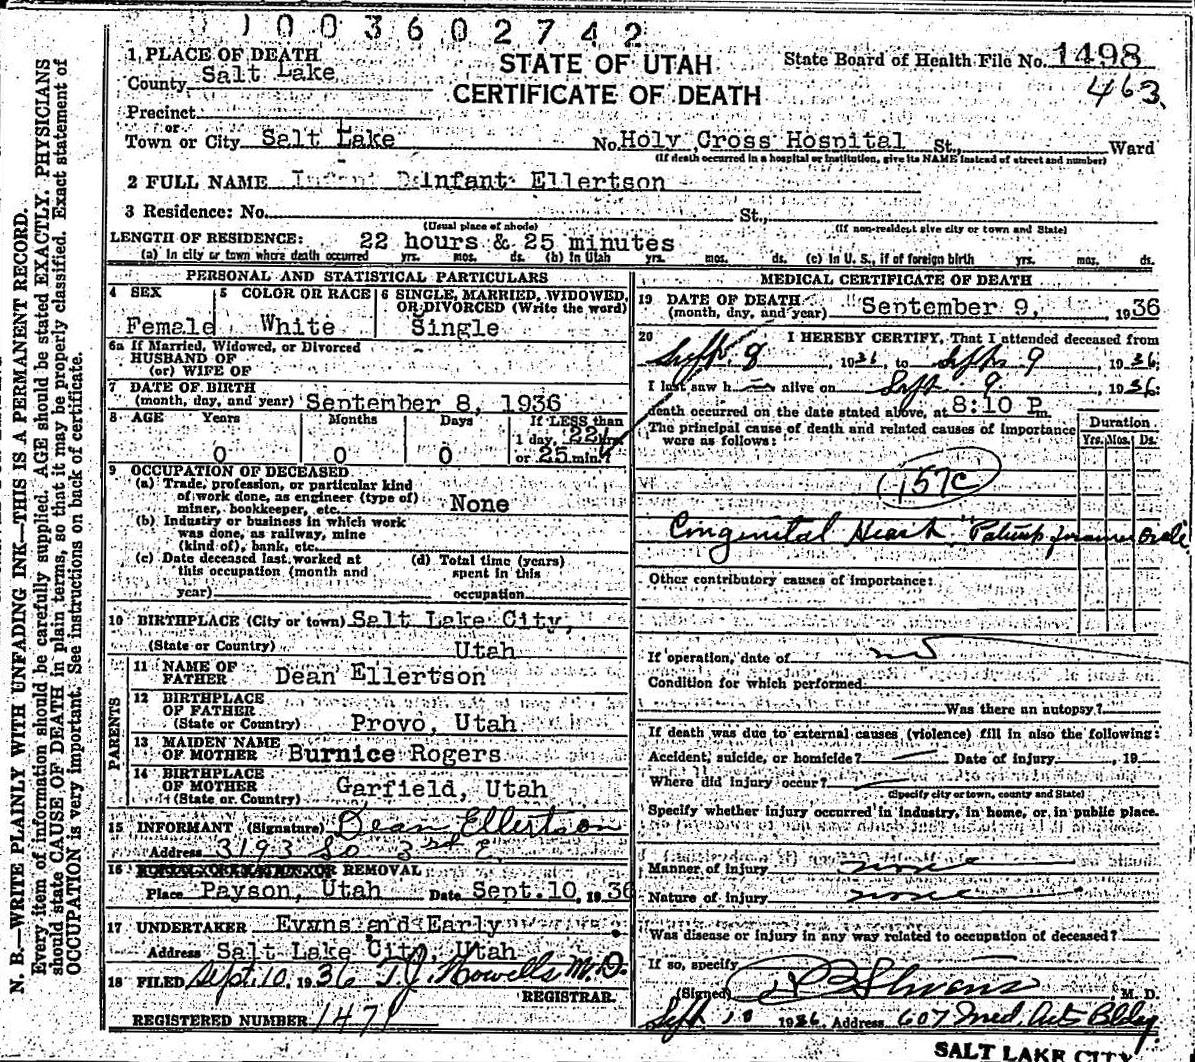 1003602742
STATE OF UTAH
CERTIFICATE OF DEATH
State Board of Health File No. 1498
463
N. B.—WRITE PLAINLY WITH UNFADING INK—THIS IS A PERMANENT RECORD.
Every item of information should be carefully supplied. AGE should be stated EXACTLY. PHYSICIANS
should state CAUSE OF DEATH in plain terms, so that it may be properly classified. Exact statement of
OCCUPATION is very important. See instructions on back of certificate.
1 PLACE OF DEATH
County Salt Lake
Precinct
or
Town or City Salt Lake No. Holy Cross Hospital St., Ward
(If death occurred in a hospital or institution, give its NAME instead of street and number)
2 FULL NAME Infant Ellertson
3 Residence: No. St.,
(Usual place of abode) (If non-resident give city or town and State)
LENGTH OF RESIDENCE: 22 hours & 25 minutes
(a) In city or town where death occurred yrs. mos. ds. (b) In Utah yrs. mos. ds. (c) In U. S., if of foreign birth yrs. mos. ds.
PERSONAL AND STATISTICAL PARTICULARS
4 SEX 5 COLOR OR RACE 6 SINGLE, MARRIED, WIDOWED,
OR DIVORCED (Write the word)
Female White Single
6a If Married, Widowed, or Divorced
HUSBAND OF
(or) WIFE OF
7 DATE OF BIRTH
(month, day, and year) September 8, 1936
8 AGE Years Months Days If LESS than
1 day, 22 hrs.
0 0 0 or 25 min.
9 OCCUPATION OF DECEASED
(a) Trade, profession, or particular kind
of work done, as engineer (type of)
miner, bookkeeper, etc. None
(b) Industry or business in which work
was done, as railway, mine
(kind of), bank, etc.
(c) Date deceased last worked at (d) Total time (years)
this occupation (month and spent in this
year) occupation
10 BIRTHPLACE (City or town) Salt Lake City,
(State or Country) Utah
PARENTS
11 NAME OF
FATHER Dean Ellertson
12 BIRTHPLACE
OF FATHER
(State or Country) Provo, Utah
13 MAIDEN NAME
OF MOTHER Burnice Rogers
14 BIRTHPLACE
OF MOTHER
(State or Country) Garfield, Utah
15 INFORMANT (Signature) Dean Ellertson
Address 3193 So 3rd E.
16 OR REMOVAL:
Place Payson, Utah Date Sept. 10, 1936
17 UNDERTAKER Evans and Early
Address Salt Lake City, Utah
18 FILED Sept. 10, 1936 T. J. Howells M.D.
REGISTRAR.
REGISTERED NUMBER 1471
MEDICAL CERTIFICATE OF DEATH
19 DATE OF DEATH
(month, day, and year) September 9, 1936
20 I HEREBY CERTIFY, That I attended deceased from
Sept. 8, 1936 to Sept 9, 1936
I last saw h alive on Sept 9, 1936
death occurred on the date stated above, at 8:10 P m.
The principal cause of death and related causes of importance
were as follows:
Duration
Yrs. Mos. Ds.
157c
Congenital Heart "Patent foramen ovale"
Other contributory causes of importance:
If operation, date of no
Condition for which performed
Was there an autopsy?
If death was due to external causes (violence) fill in also the following:
Accident, suicide, or homicide? Date of injury , 19
Where did injury occur?
(Specify city or town, county and State)
Specify whether injury occurred in industry, in home, or in public place.
Manner of injury none
Nature of injury none
Was disease or injury in any way related to occupation of deceased?
If so, specify
(Signed) M. D.
Sept 10 1936 Address 607 Med. Arts Bldg.
SALT LAKE CITY